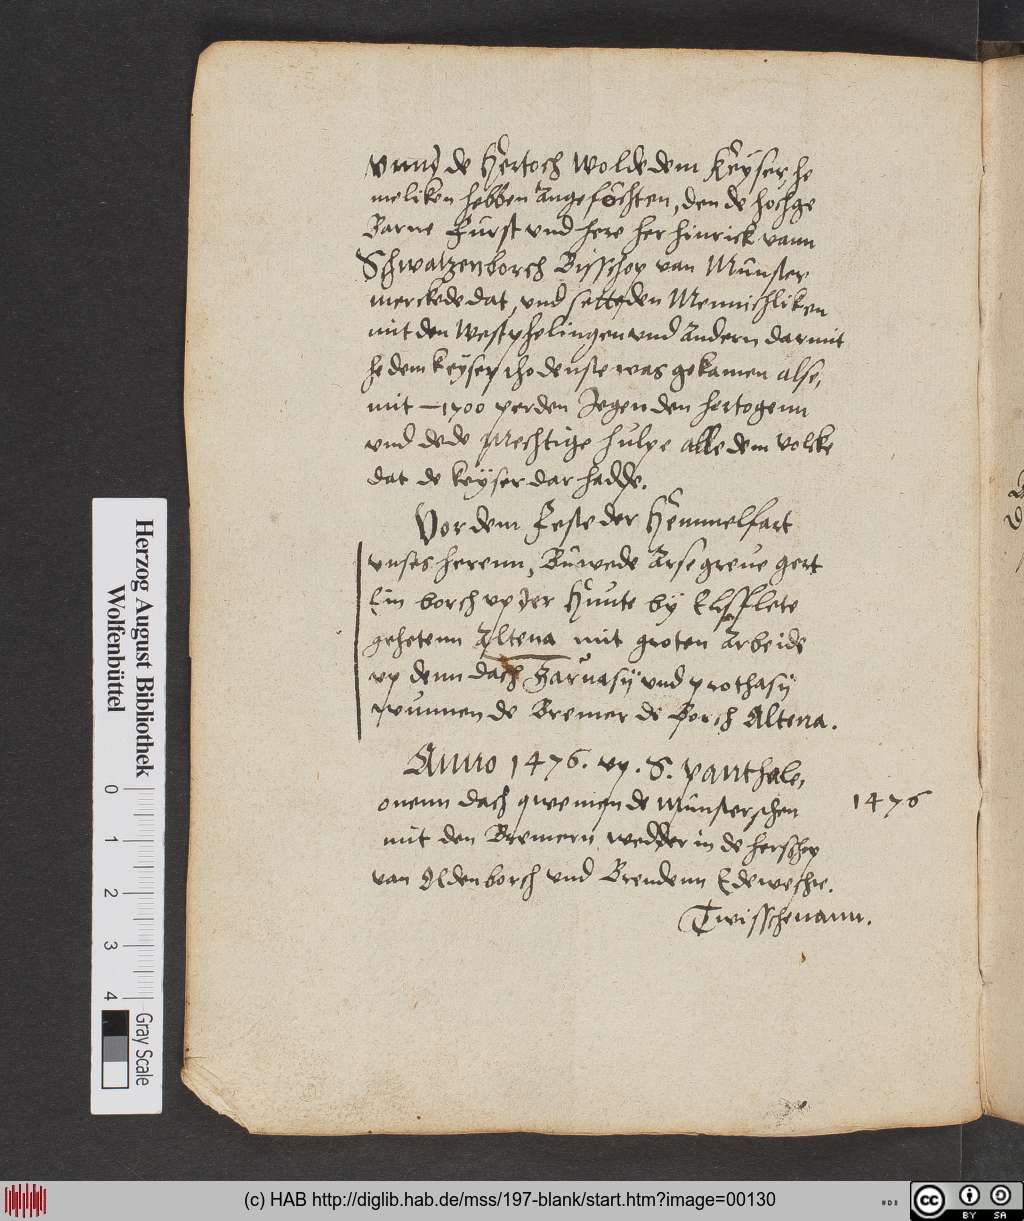 vnnd de Hertoch wolde dem Keÿser he
meliken hebben Angefochten, den de hochge
Barne Furst vnd here her Hinrick vann
Schwatzenborch Bisschop van Münster
merckede dat, vnd setteden Mennichliken
mit den Westphelingen vnd Andern darmit
he dem Keÿser tho denste was gekamen alse,
mit – 1700 perden Jegen den hertogenn
vnd dede Mechtige hulpe alle dem volcke
dat de keÿser dar hadde.
Vor dem Feste der Hemmelfart
vnses herenn, Buwede Arse greue Gert
Ein borch vp der Hunte bÿ Elssflete
gehetenn Altena mit groten Arbeide
vp denn dach Garuasÿ vnd prothasÿ
wunnen de Bremer de Borch Altena.
Anno 1476. vp. S. panthale,
onenn dach qwemen de Münsterschen
1476
mit den Bremern wedder in de herschop
van Oldenborch vnd Brendenn Edewechte.
Twisschenann.
Herzog August Bibliothek
Wolfenbüttel
0 1 2 3 4
Gray Scale
(c) HAB http://diglib.hab.de/mss/197-blank/start.htm?image=00130
cc BY SA